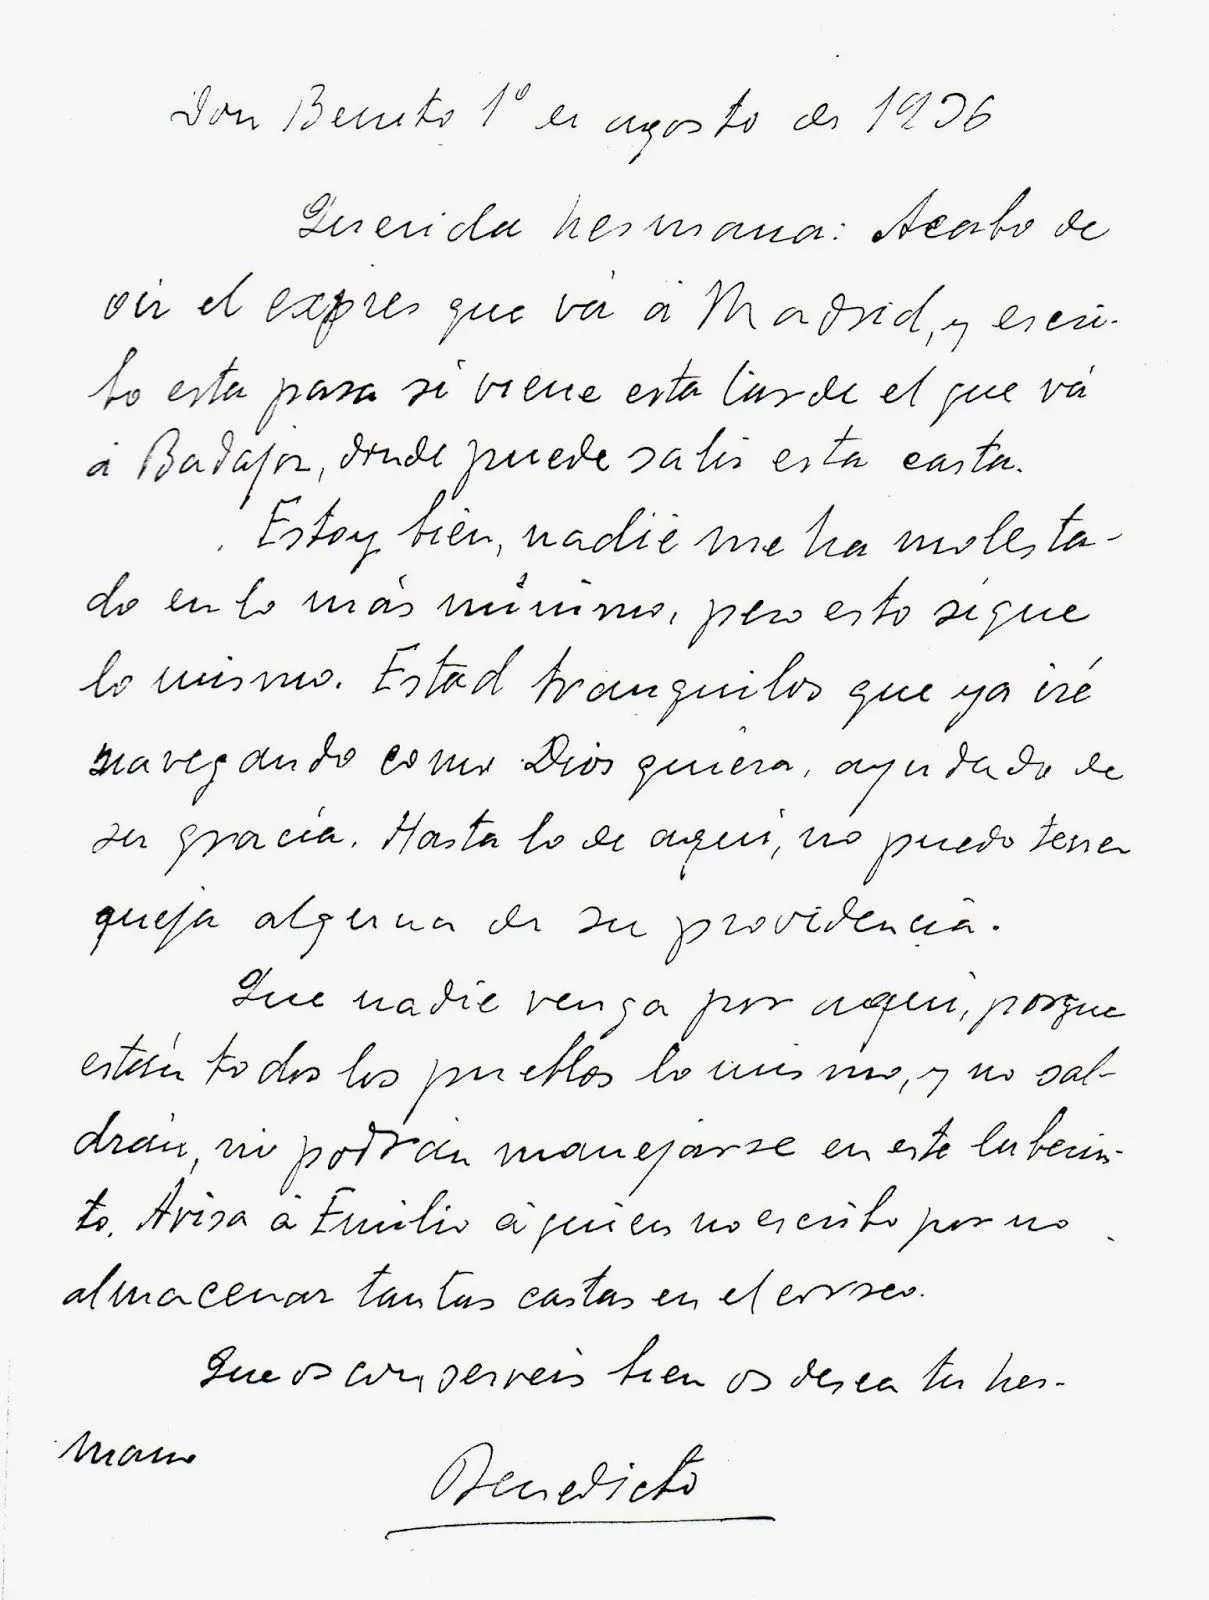 Don Benito 1º de agosto de 1936
Querida hermana: Acabo de
oir el expres que vá á Madrid, y escri-
bo esta para si viene esta tarde el que vá
á Badajoz, donde puede salir esta carta.
Estoy bien, nadie me ha molesta-
do en lo más mínimo, pero esto sigue
lo mismo. Estad tranquilos que ya iré
navegando como Dios quiera, ayudado de
su gracia. Hasta lo de aquí, no puedo tener
queja alguna de su providencia.
Que nadie venga por aquí, porque
están todos los pueblos lo mismo, y no sal-
drán, ni podrán manejarse en este laberin-
to. Avisa á Emilio á quien no escribo por no
almacenar tantas cartas en el correo.
Que os conserveis bien os desea tu her-
mano
Benedicto